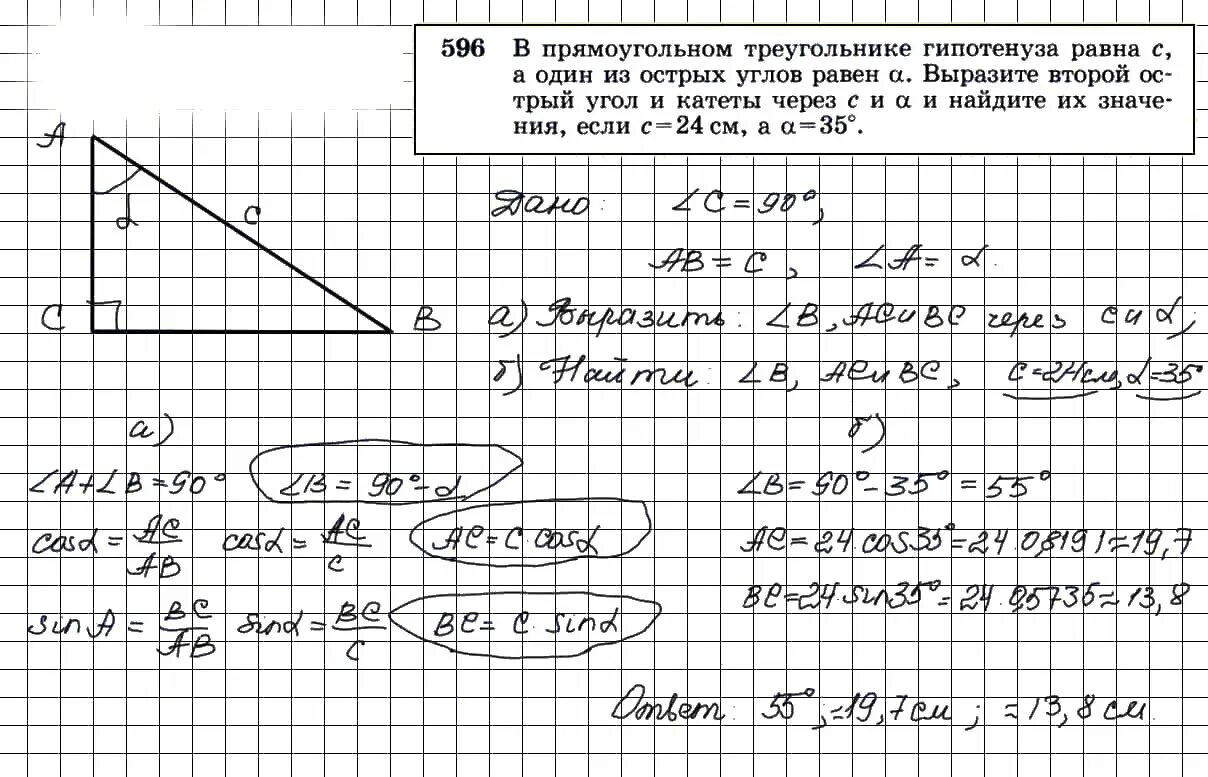 596 В прямоугольном треугольнике гипотенуза равна c,
а один из острых углов равен α. Выразите второй ос-
трый угол и катеты через c и α и найдите их значе-
ния, если c = 24 см, а α = 35°.
A
α
c
C
B
Дано: ∠C = 90°,
AB = c, ∠A = α.
а) Выразить: ∠B, AC и BC через c и α;
б) Найти: ∠B, AC и BC, c = 24 см, α = 35°
а)
∠A + ∠B = 90° ∠B = 90° - α
cosα = AC/AB cosα = AC/c AC = c · cosα
sinA = BC/AB sinα = BC/c BC = c · sinα
б)
∠B = 90° - 35° = 55°
AC = 24 · cos35° = 24 · 0,8191 ≈ 19,7
BC = 24 · sin35° = 24 · 0,5735 ≈ 13,8
Ответ: 55°; ≈19,7 см; ≈13,8 см.